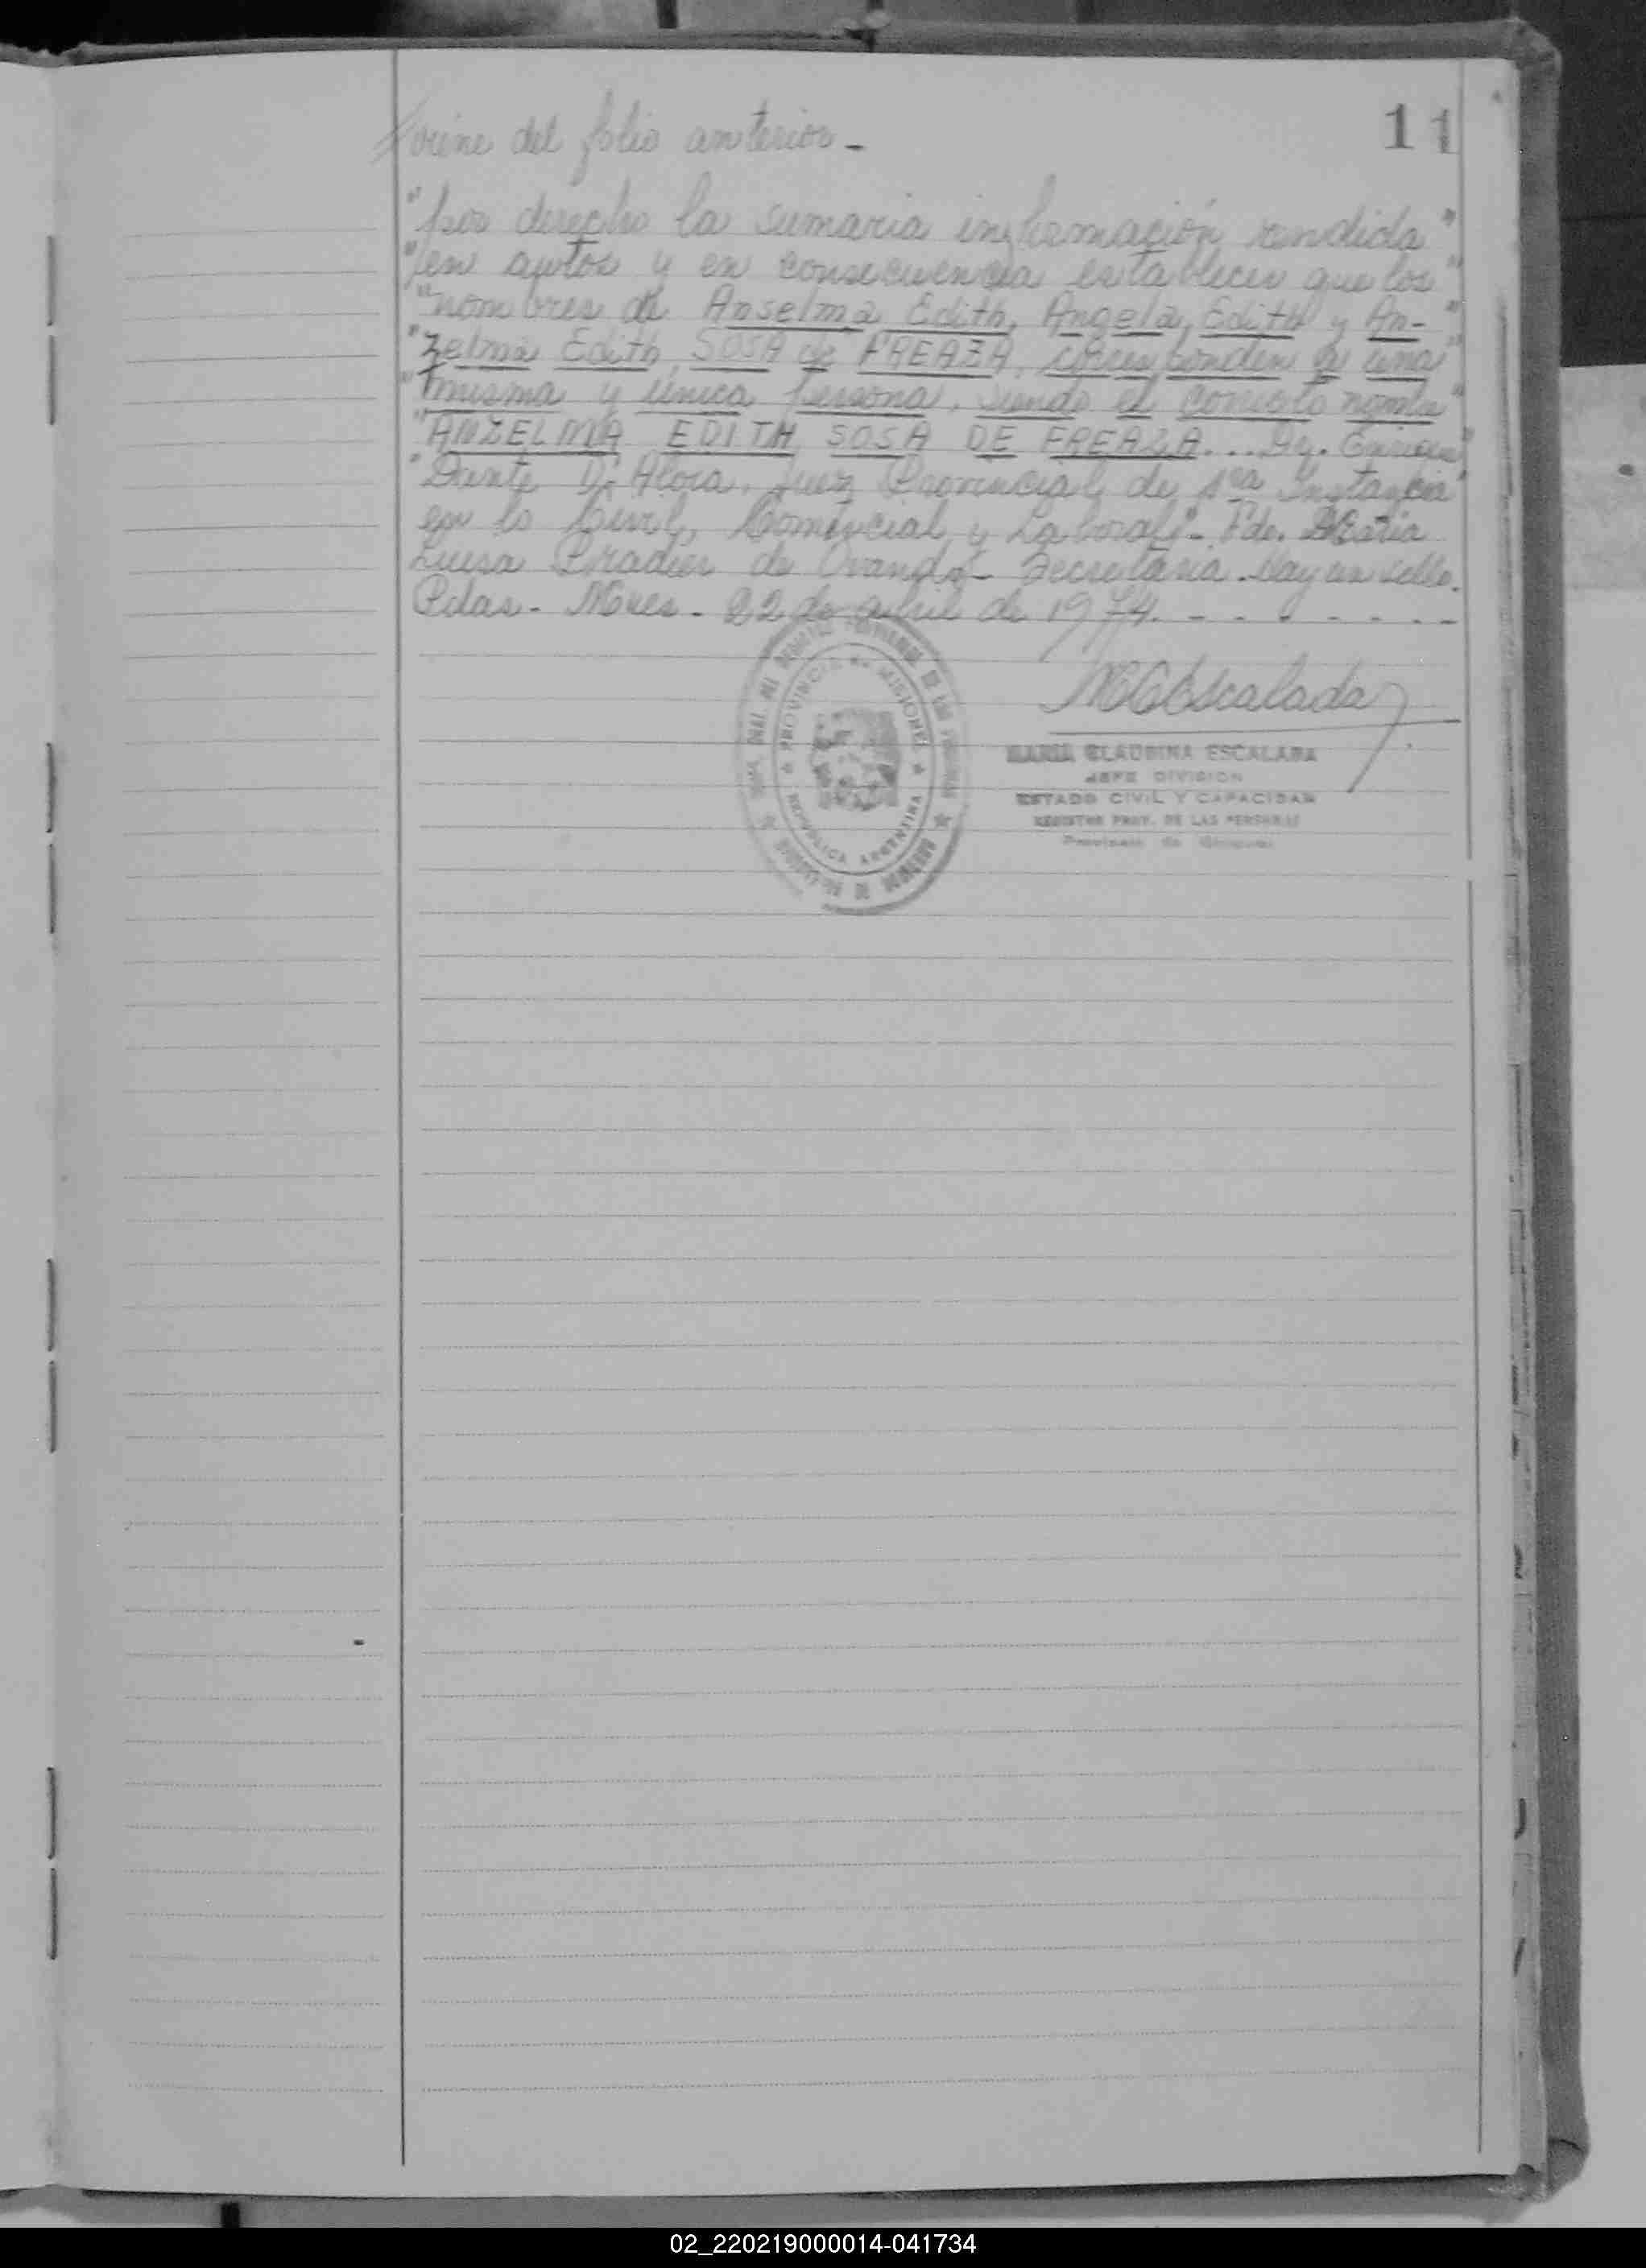 11
viene del folio anterior -
"por derecho la sumaria información rendida"
"en autos y en consecuencia establecer que los"
"nombres de Anselma Edith, Angela, Edith y An-"
"zelma Edith SOSA de FREAZA, corresponden a una"
"misma y única persona, siendo el correcto nombre"
"ANZELMA EDITH SOSA DE FREAZA.... Dr.
"Dante D'Alora, Juez Provincial de 1ra Instancia"
en lo Civil, Comercial y Laboral".- Fdo. Maria
Luisa Pradier de Ovando - Secretaria. Hay un sello.
Pdas - Mnes - 22 de abril de 1974. - - - - - - - -
MCEscalada
MARIA CLAUDINA ESCALADA
JEFE DIVISION
ESTADO CIVIL Y CAPACIDAD
REGISTRO PROV. DE LAS PERSONAS
Provincia de Misiones
PROVINCIA DE MISIONES
REPUBLICA ARGENTINA
MINISTERIO DE GOBIERNO
02_220219000014-041734